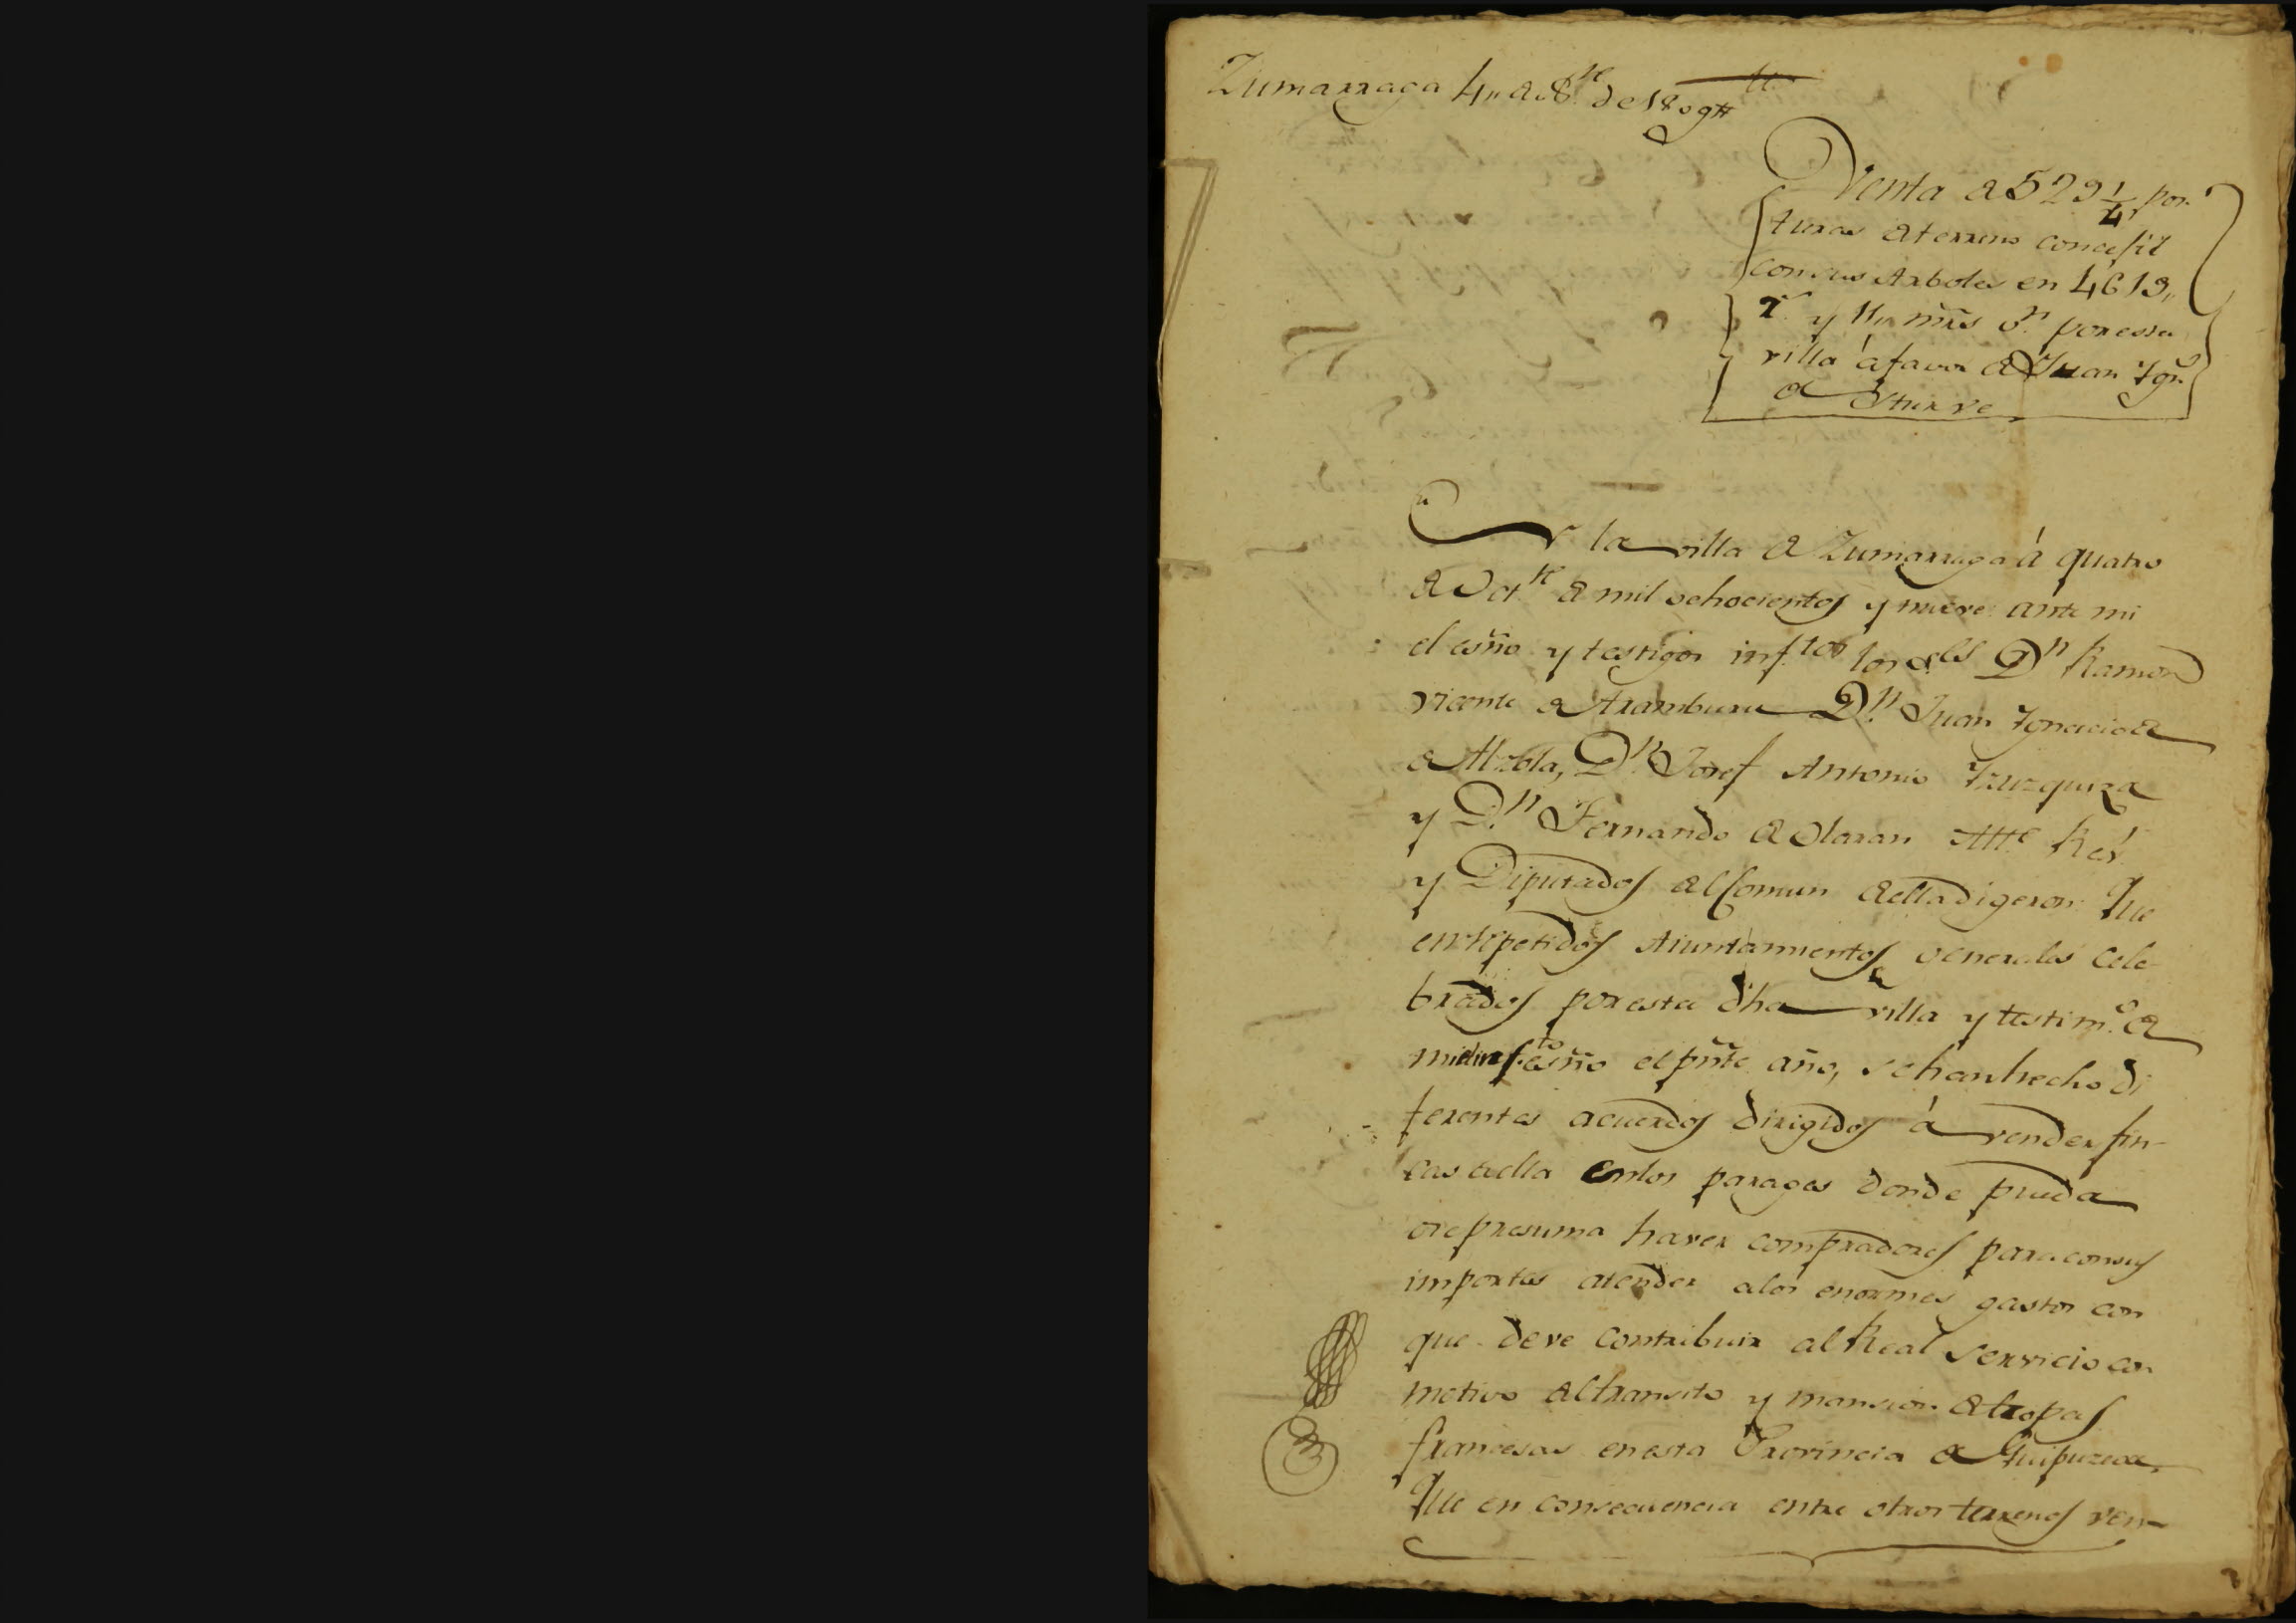 Zumarraga 4,, de 8.re de 1809
Venta de 529 1/4 pos-
turas de terreno concejil
con sus Arboles en 4619,,
r.s y 11,, mrs v.n por esta
villa á favor de Juan Ygn.o
de Yturve
En la villa de Zumarraga á quatro
de Oct.re de mil ochocientos y nueve ante mi
el esño y testigos inf.tos los S.res D.n Ramon
Vicente de Aramburu D.n Juan Ygnacio de
de Alzola, D.n Josef Antonio Yzuzquiza
y D.n Fernando de Olaran Alc.e Reg.r
y Diputados del Comun de ella digeron: Que
en repetidos Aiuntamientos generales cele-
brados por esta dha villa y testim.o de
mi el inf.to esño el pñte año, se han hecho di
ferentes acuerdos dirigidos á vender fin-
cas de ella en los parages donde pueda
o se presuma haver compradores para con sus
importes atender a los enormes gastos con
que deve contribuir al Real servicio con
motivo del transito y mansion de tropas
francesas en esta Provincia de Guipuzcoa,
Que en consecuencia entre otros terrenos ven-